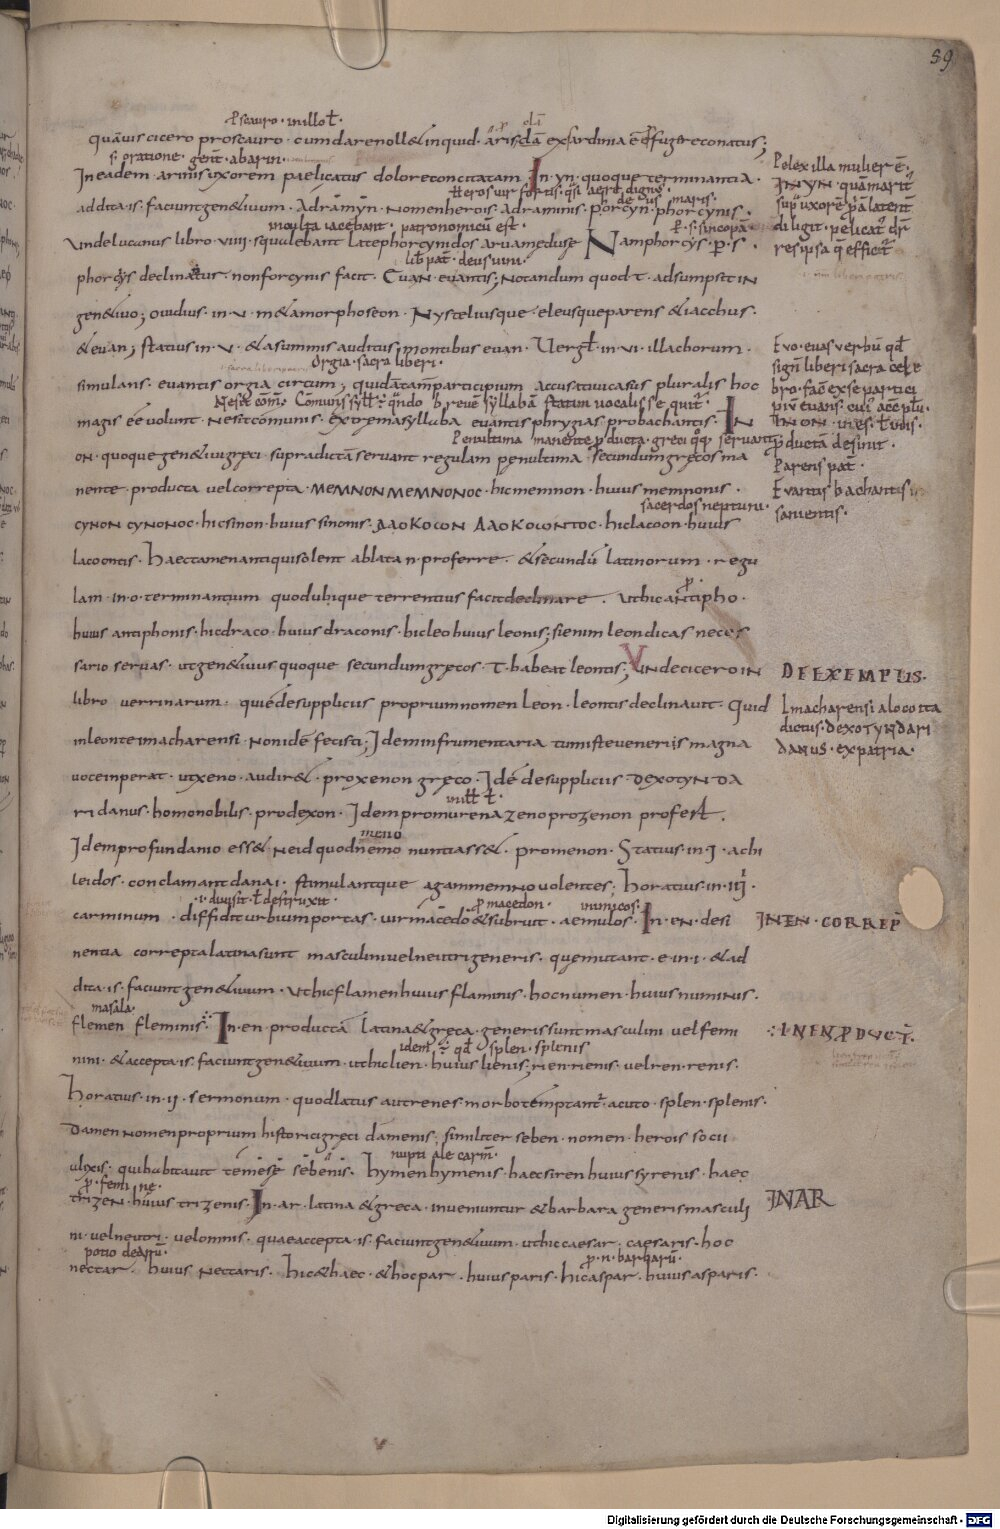 59
quamuis cicero pro scauro · cum dare noll& inquid · aris dam ex sardinia ē
In eadem · arinis uxorem paelicatus dolore concitatam · In · yn · quoque terminantia ·
addita · is · faciunt gen&iuum · Adramyn · nomen herois · Adraminis · phorcyn · phorcynis ·
Unde lucanus libro · viiii · squalebant late phorcynidos arua meduse Nam phorcys · p · s ·
phorcys declinatus · non forcynis facit · Euan · euantis; notandum quod · t · adsumpsit in
gen&iuo; ouidius · in · v · m&amorphoseon · Nycteliusque · eleusque parens &iacchus ·
& euan; statius in · v · & a summis auditus montibus euan · in · vi · illa chorum ·
simulans · euantis orgia circum; quidam tam participium accusatiui casus pluralis hoc
magis eē uolunt · ne sit comunis · extrema syllaba euantis phrygias pro bachantis · IN
on · quoque gen&iui greci · supradictam seruant regulam penultima · secundum grecos ma
nente · producta uel correpta · MEMNON MEMNONOC · hic memnon · huius memnonis ·
CYNON CYNONOC · hic sinon · huius sinonis · ΛΑΟΚΟωΝ ΛΑΟΚΟωΝΤΟC · hic lacoon · huius
lacoontis · Haec tamen antiqui solent ablata · n · proferre · & secundū latinorum · regu
lam · in · o · terminantium quod ubique terrentius facit declinare · Ut hic antipho ·
huius antiphonis · hic draco · huius draconis · hic leo huius leonis; si enim leon dicas neces
sario seruas · ut gen&iuus quoque secundum grecos · t · habeat leontis; Unde cicero in
libro uerrinarum · qui ē de suppliciis proprium nomen leon · leontis declinauit · Quid
in leonte imacharensi · non idē fecisti; Idem in frumentaria tum iste uenerijs magna
uoce imperat · ut xeno · audir&; · pro xenon greco · Idē de suppliciis DEXO TYNDA
ridanus · homo nobilis · pro dexon · Idem pro murena zeno pro zenon profert ·
Idem pro fundanio ess& · neid quod nemo nuntiass& · pro menon · Statius · in · I · achi
leidos · conclamant danai · stimulantque agammemno uolentes; Horatius · in · iii ·
carminum · diffidit urbium portas · uir macedo & subruit · aemulos · In · en · desi
nentia correpta latina sunt masculini uel neutri generis · que mutant · e · in · i · & ad
dita · is · faciunt gen&iuum · Ut hic flamen huius flaminis · hoc numen · huius numinis ·
flemen fleminis · In · en · producta latina & greca · generis sunt masculini uel femi
nini · & accepta · is · faciunt gen&iuum · ut hic lien · huius lienis; rien rienis · uel ren · renis ·
Horatius · in · ii · sermonum · quod latus aut renes · morbo temptantur acuto · splen · splenis ·
Damen nomen proprium historici greci damenis; similiter seben · nomen · herois socii
ulixis · qui habitauit temese sebenis · hymen hymenis · haec siren huius syrenis · haec
trizen · huius trizenis · In · ar · latina & greca · inueniuntur & barbara generis masculi
ni · uel neutri · uel omnis · quae accepta · is · faciunt gen&iuum · ut hic caesar · caesaris · hoc
nectar · huius nectaris · hic & haec · & hoc par · huius paris · hic aspar · huius asparis ·
orgia · sacra liberi ·
sacerdos neptuni ·
·i· diuisit · destruxit ·
inimicos ·
splen · splenis
Pelex illa mulier ē ·
IN YN · quā marit
res ipsa
Euo · euas uerbū
signū liberi sacra cele
IN ON ·
ducta desinit ·
Parens pat
Euantis bachantis
DE EXEMPLIS ·
Imacharensi a loco ita
dictus · DEXO TYNDARI
DANUS · ex patria ·
IN EN · CORREP
IN EN PDUCT
IN AR
Digitalisierung gefördert durch die Deutsche Forschungsgemeinschaft - DFG